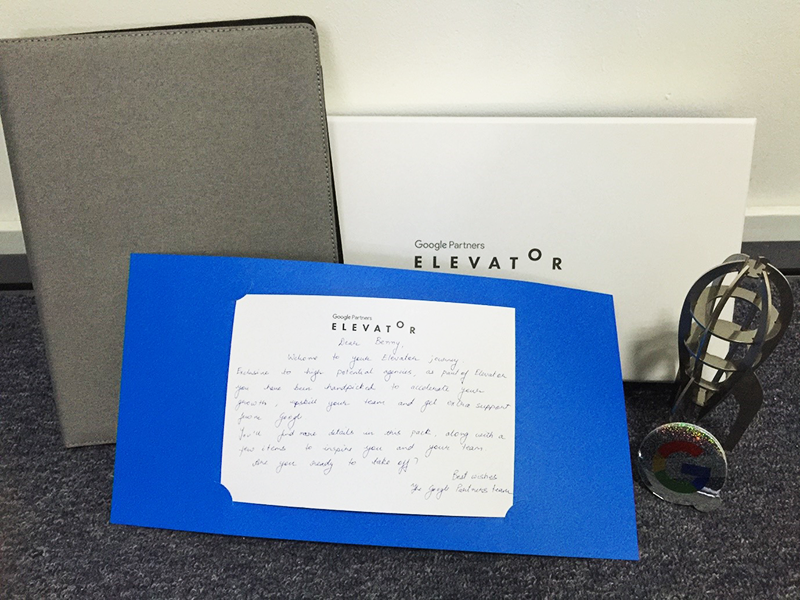 Google Partners
ELEVATOR
Google Partners
ELEVATOR
Dear Benny,
Welcome to your Elevator journey
Exclusive to high potential agencies, as part of Elevator
you have been handpicked to accelerate your
growth, upskill your team and get extra support
from Google
You'll find more details in this pack, along with a
few items to inspire you and your team
Are you ready to take off?
Best wishes
The Google Partners team
G